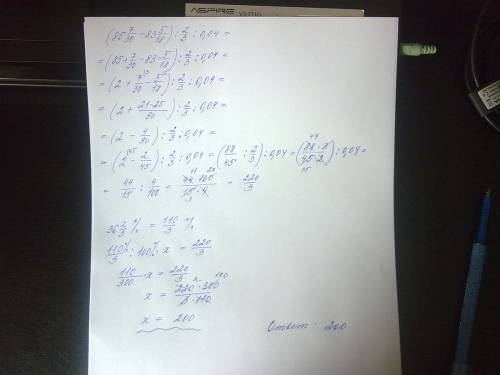 ASPIRE
(85 7/30 - 83 5/18) : 2/3 : 0,04 =
= (85 + 7/30 - 83 - 5/18) : 2/3 : 0,04 =
= (2 + 7/30 - 5/18) : 2/3 : 0,04 =
= (2 + 21-25/90) : 2/3 : 0,04 =
= (2 - 4/90) : 2/3 : 0,04 =
= (2 - 2/45) : 2/3 : 0,04 = (88/45 : 2/3) : 0,04 = (88·3/45·2) : 0,04 =
= 44/15 : 4/100 = 44·100/15·4 = 220/3
36 2/3 % = 110/3 %
110%/3 : 100% · x = 220/3
110/300 · x = 220/3
x = 220·300/3·110
x = 200
Ответ: 200